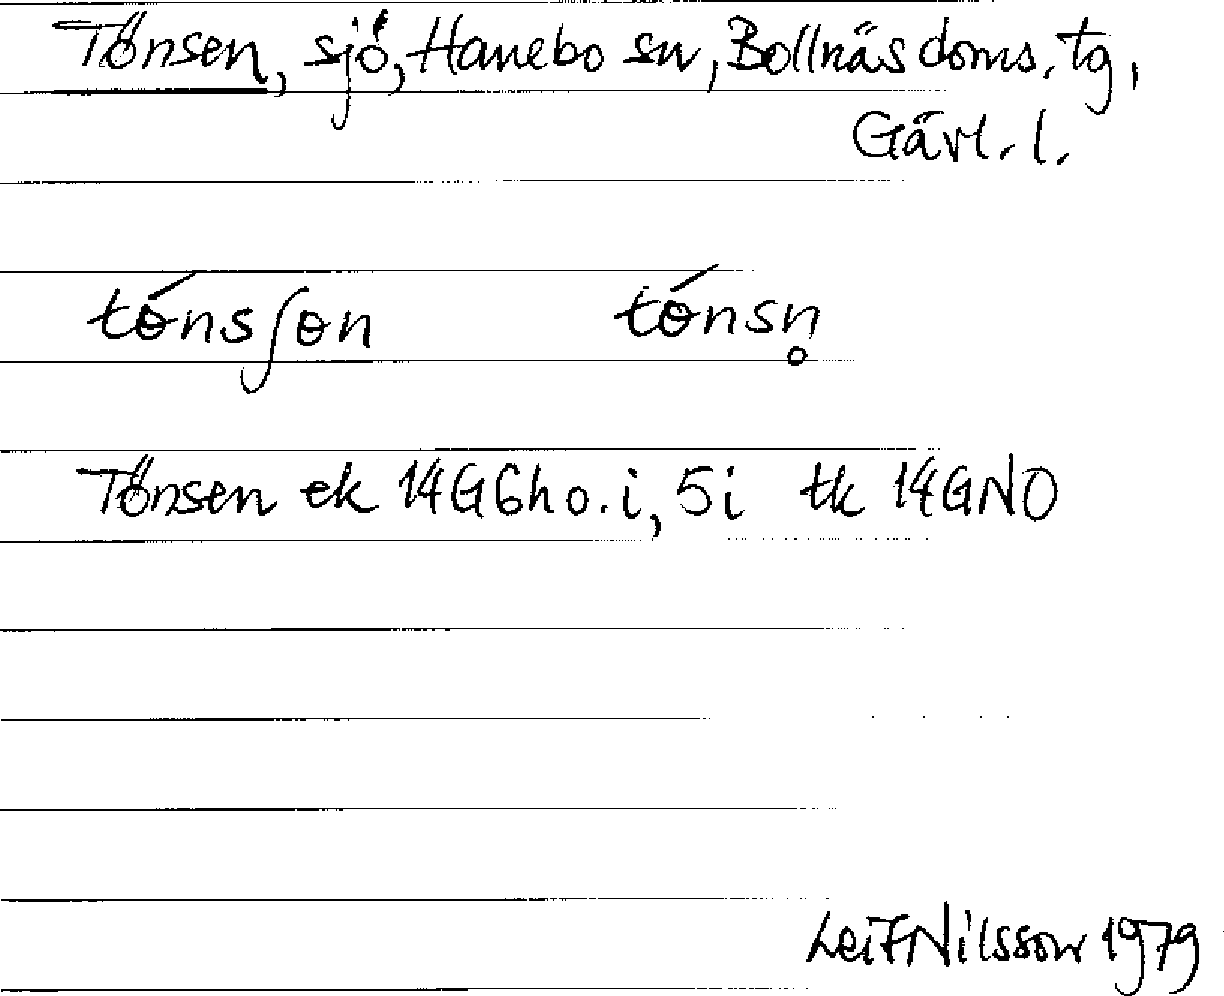 Tönsen, sjö, Hanebo sn, Bollnäs doms. tg,
Gävl. l.
tǿnsʃøn tǿnsn̥
Tönsen ek 14G6h o. i, 5i tk 14GNO
Leif Nilsson 1979